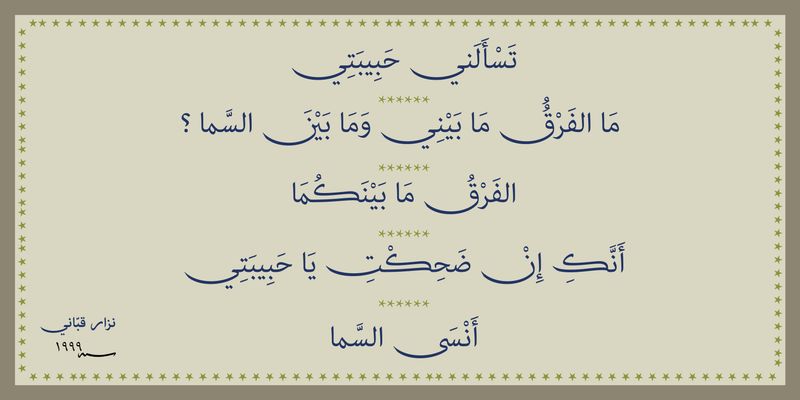 تَسْأَلَني حَبِيبَتِي
مَا الفَرْقُ مَا بَيْنِي وَمَا بَيْنَ السَّما ؟
الفَرْقُ مَا بَيْنَكُمَا
أَنَّكِ إِنْ ضَحِكْتِ يَا حَبِيبَتِي
أَنْسَى السَّما
نزار قبّاني
سنة ١٩٩٩